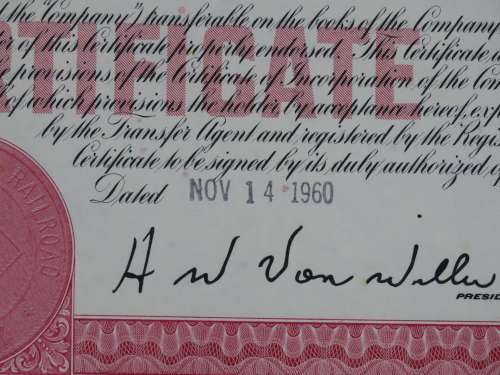 d the "Company", transferable on the books of the Company
er of this Certificate properly endorsed. This Certificate a
e provisions of the Certificate of Incorporation of the Com
of which provisions the holder by acceptance hereof, exp
by the Transfer Agent and registered by the Regis
Certificate to be signed by its duly authorized o
RTIFICATE
Dated NOV 14 1960
RAILROAD
A W Von Wille
PRESID